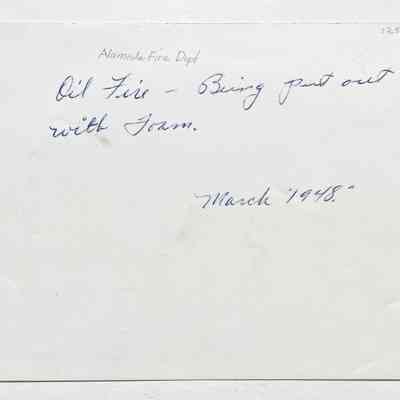 Alameda Fire Dept
Oil Fire – Being put out
with Foam.
March "1948."